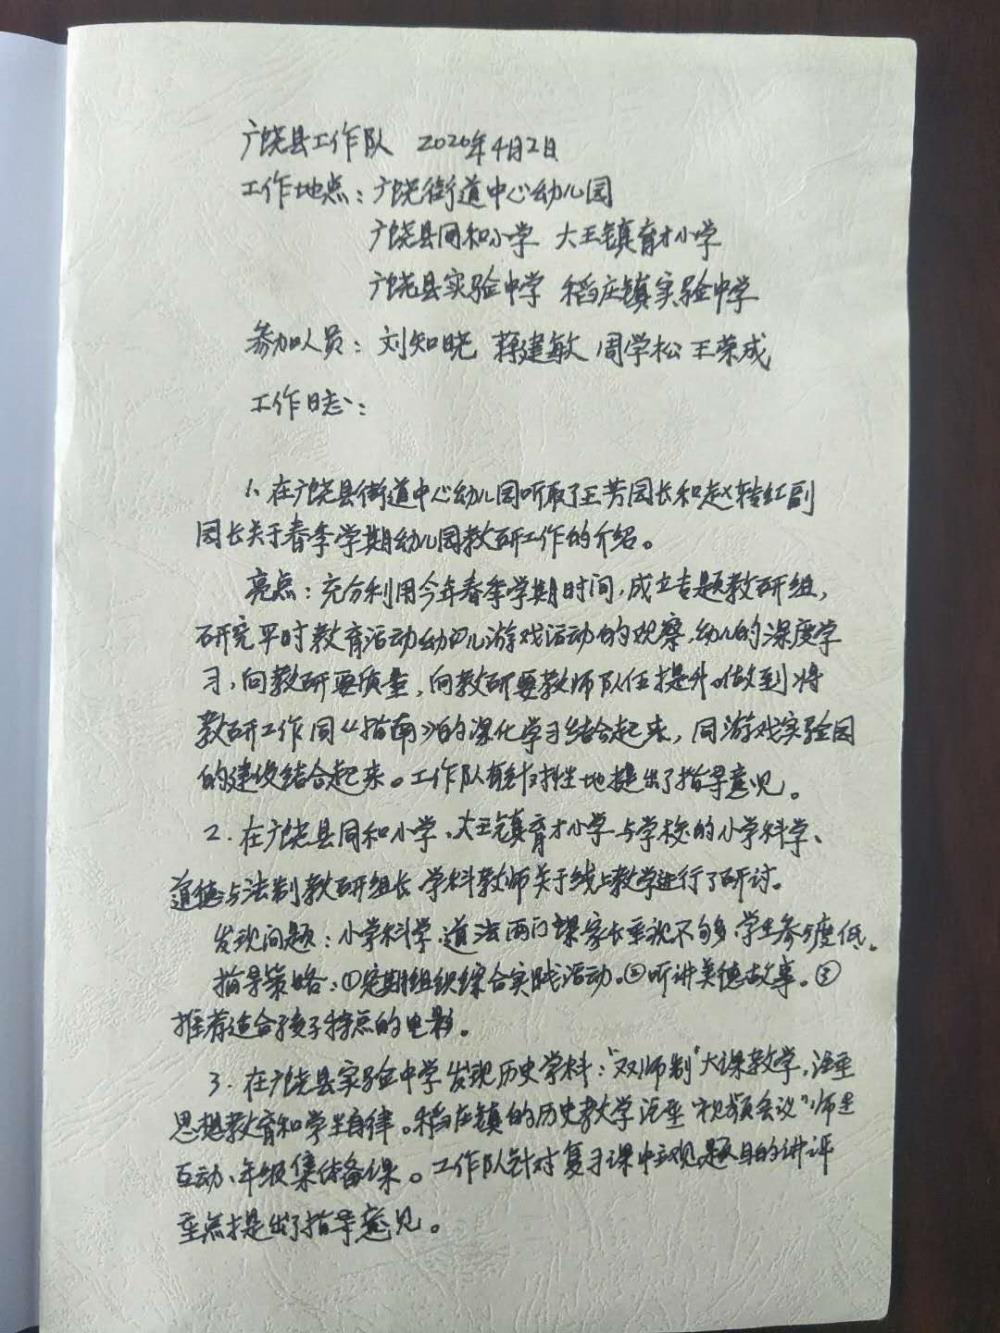 广饶县工作队 2020年4月2日
工作地点：广饶街道中心幼儿园
广饶县同和小学 大王镇育才小学
广饶县实验中学 稻庄镇实验中学
参加人员：刘知晓 蒋建敏 周学松 王荣成
工作日志：
1、在广饶县街道中心幼儿园听取了王芳园长和赵桂红副
园长关于春季学期幼儿园教研工作的介绍。
亮点：充分利用今年春季学期时间，成立专题教研组，
研究平时教育活动幼儿游戏活动的观察、幼儿的深度学
习，向教研要质量，向教研要教师队伍提升。做到将
教研工作同《指南》的深化学习结合起来，同游戏实验园
的建设结合起来。工作队有针对性地提出了指导意见。
2．在广饶县同和小学、大王镇育才小学与学校的小学科学、
道德与法制教研组长、学科教师关于线上教学进行了研讨。
发现问题：小学科学、道法两门课家长重视不够，学生参与度低。
指导策略：①定期组织综合实践活动。②听讲美德故事。③
推荐适合孩子特点的电影。
3．在广饶县实验中学发现历史学科："双师制"大课教学，注重
思想教育和学生自律。稻庄镇的历史教学注重"视频会议"师生
互动、年级集体备课。工作队针对复习课中主观题目的讲评
重点提出了指导意见。